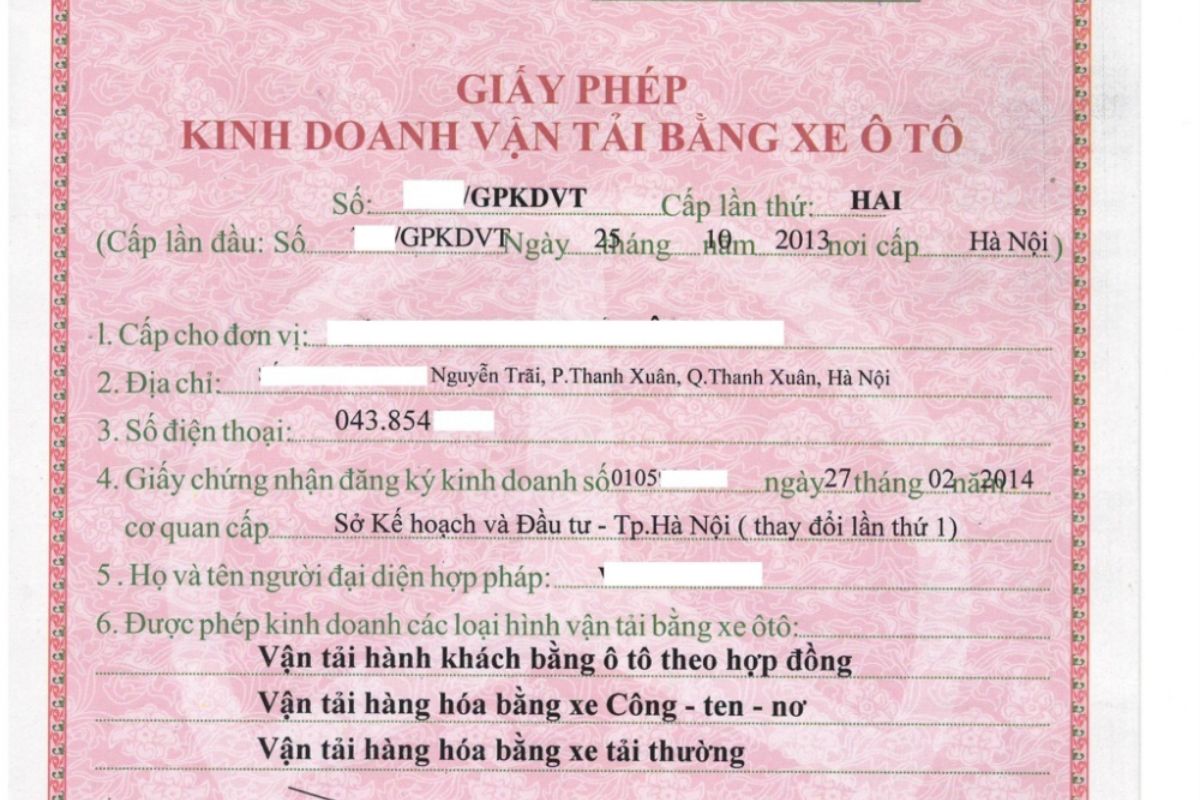 GIẤY PHÉP
KINH DOANH VẬN TẢI BẰNG XE Ô TÔ
Số: /GPKDVT Cấp lần thứ: HAI
(Cấp lần đầu: Số /GPKDVT Ngày 25 tháng 10 năm 2013 nơi cấp Hà Nội)
1. Cấp cho đơn vị:
2. Địa chỉ: Nguyễn Trãi, P.Thanh Xuân, Q.Thanh Xuân, Hà Nội
3. Số điện thoại: 043.854
4. Giấy chứng nhận đăng ký kinh doanh số 0105 ngày 27 tháng 02 năm 2014
cơ quan cấp Sở Kế hoạch và Đầu tư - Tp.Hà Nội ( thay đổi lần thứ 1)
5 . Họ và tên người đại diện hợp pháp:
6. Được phép kinh doanh các loại hình vận tải bằng xe ôtô:
Vận tải hành khách bằng ô tô theo hợp đồng
Vận tải hàng hóa bằng xe Công - ten - nơ
Vận tải hàng hóa bằng xe tải thường